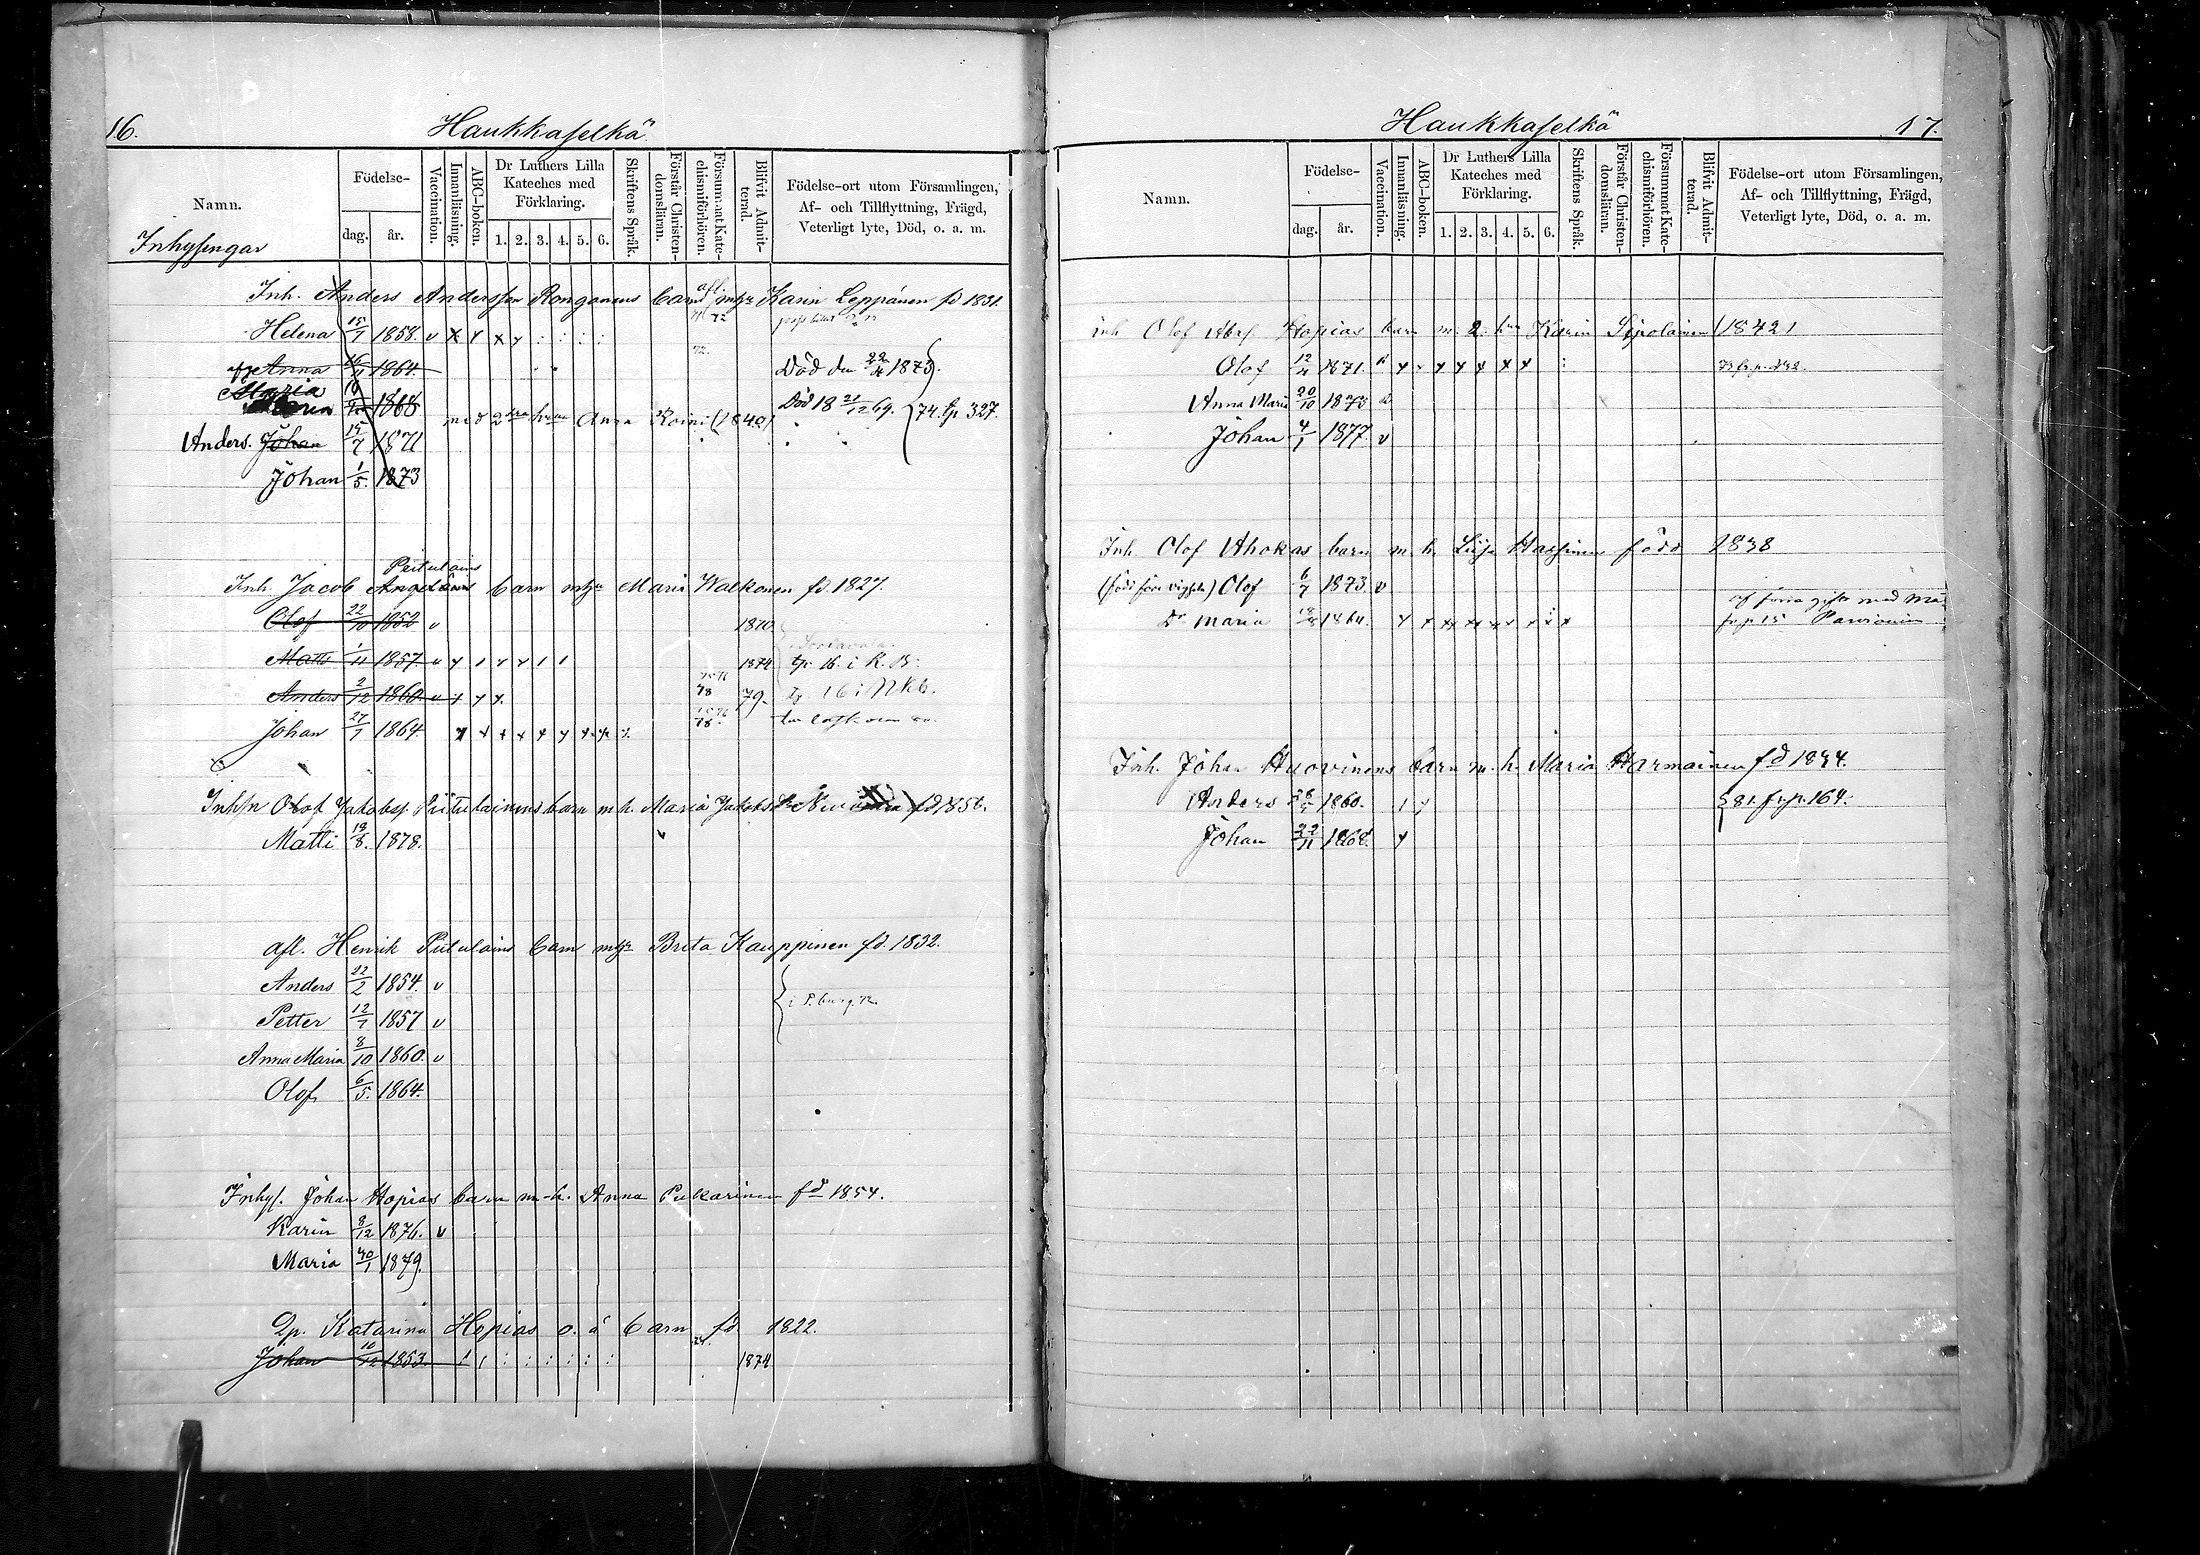 16.
Haukkaselkä
Namn.
Inhysingar
Födelse-
dag. år.
Vaccination.
Innanläsning.
ABC-boken.
Dr Luthers Lilla Kateches med Förklaring.
1. 2. 3. 4. 5. 6.
Skriftens Språk.
Förstår Christendomsläran.
Försummat Katechismiförhören.
Blifvit Admitterad.
Födelse-ort utom Församlingen,
Af- och Tillflyttning, Frägd,
Veterligt lyte, Död, o. a. m.
Inh. Anders Andersson Ronganens barn afl. m hu Karin Leppänen fd 1831.
Helena 15/7 1858. v x x x y
Anna 16/11 1864 Död den 22/4 1873.
Maria 1868 Död 18 21/12 69. 74. tp 327.
med 2dra hrun Anna Roini (1840)
Anders Johan 15/7 1871
Johan 1/5. 1873
Inh. Jacob Piitulains barn m hu Maria Walkonen fd. 1827.
Olof 22/10 1852 v 1870
Matts 1/11 1857 v y 1 y y 1 1 1874 tp. 16. i K. B.
Anders 2/12 1860 v 1 y y. 78 79. 16 i Nkb.
Johan 27/7 1864 78.
Inhsn Olof Jakobsf. Piitulainens barn m. h. Maria fd 1856.
Matti 18/8. 1878.
afl. Henrik Piitulains barn m hu Brita Kauppinen fd. 1832.
Anders 22/2 1854. v
i P. burg. 72.
Petter 12/7 1857 v
Anna Maria 8/10 1860. v
Olof 6/5. 1864.
Inhys. Johan Hopias barn m. h. Anna Pukarinen fd 1854.
Karin 8/12 1876. v
Maria 1879.
Qp. Katarina Hopias o. ä barn fd 1822.
Johan 10/12 1853. 1 1 1874
Haukkaselkä
17.
Namn.
Födelse-
dag. år.
Vaccination.
Innanläsning.
ABC-boken.
Dr Luthers Lilla Kateches med Förklaring.
1. 2. 3. 4. 5. 6.
Skriftens Språk.
Förstår Christendomsläran.
Försummat Katechismiförhören.
Blifvit Admitterad.
Födelse-ort utom Församlingen,
Af- och Tillflyttning, Frägd,
Veterligt lyte, Död, o. a. m.
inh Olof Abrf Hopias barn m. 2. hru Karin Sipolainen (1842)
Olof 12/4 1871.
Anna Maria 20/10 1873
Johan 4/1 1877. v
Inh. Olof Ahokas barn m. h. född 1838
Olof 6/7 1873 v
Do Maria 18/8 1860. af förra gifte med
fr. p. 15
Inh. Johan Huovinens barn m. h. Maria Harmainen fd 1834.
Anders 1860. 1 y 81. fr. p. 164.
Johan 22/11 1868. y